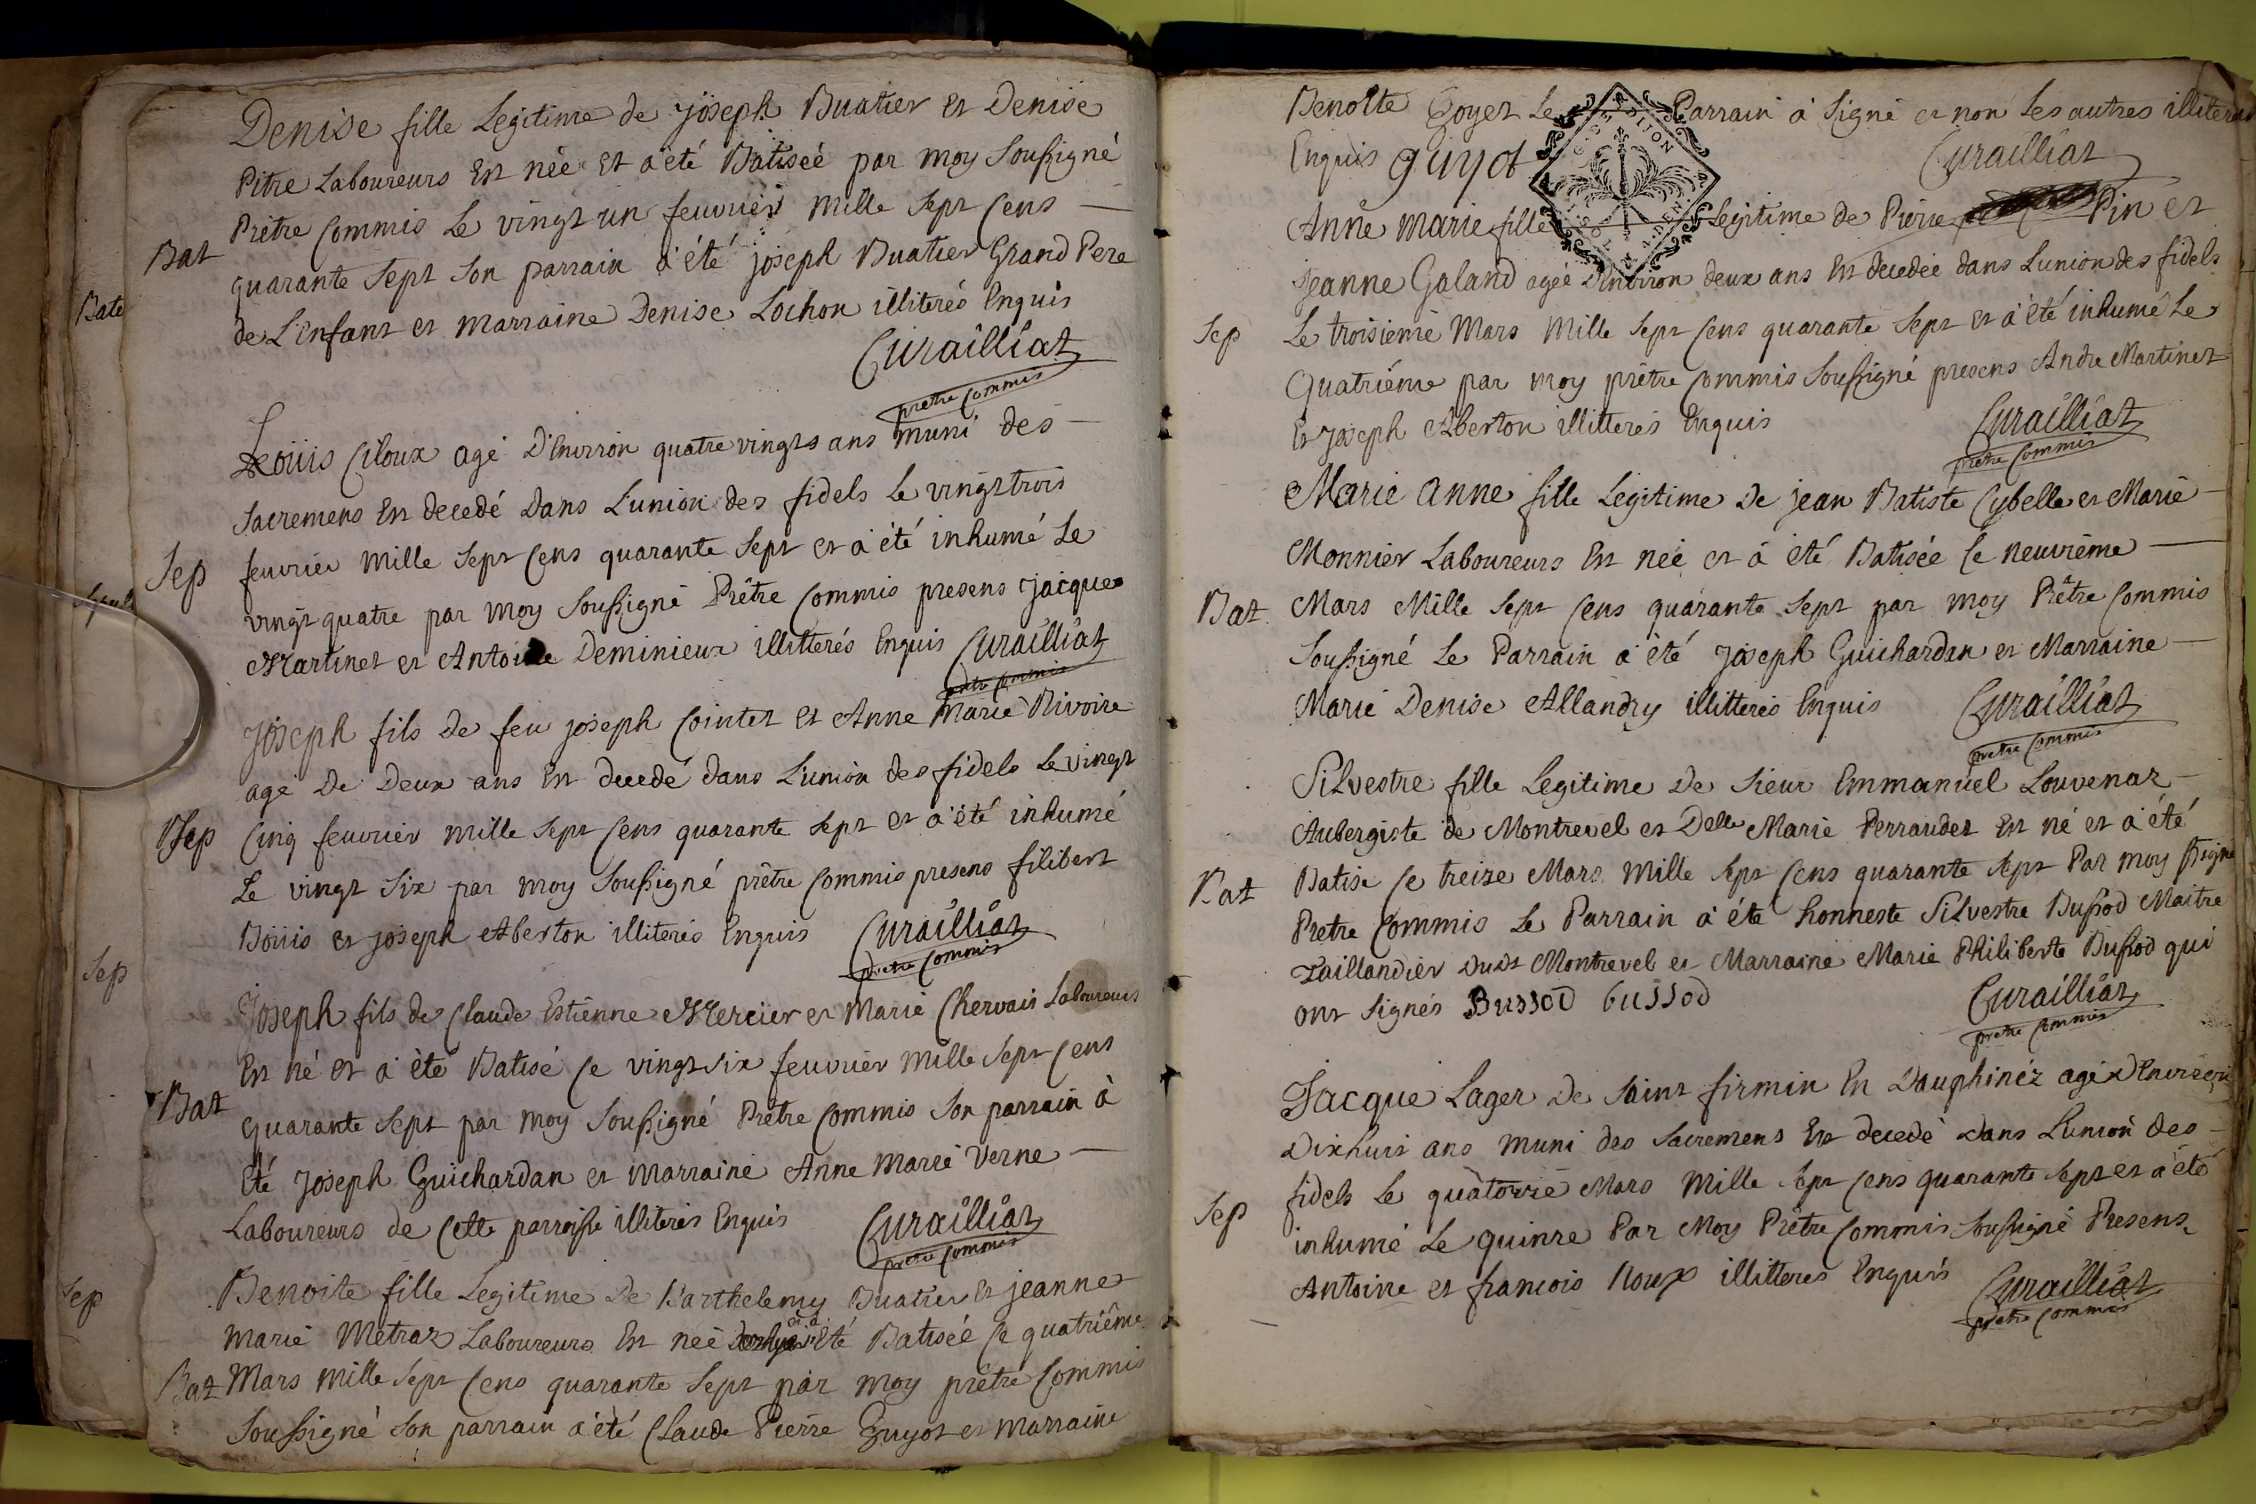 Denise fille Legitime de joseph Buatier et Denise
Pitre Laboureurs Est née et a été Batisée par moy Soussigné
Prêtre Commis Le vingt un feuvrier mille sept Cens
Bat
quarante Sept Son parrain a été joseph Buatier Grand Pere
de L'enfant et marraine Denise Lochon illiterés Enquis
Curailliat
prêtre Commis
Loüis Ciloux agé D'Environ quatre vingts ans muni des
Sacremens Est decedé Dans L'union des fidels Le vingt trois
Sep
feuvrier mille Sept Cens quarante Sept et a été inhumé Le
vingt quatre par moy Soussigné Prêtre Commis presens jacque
Martinet et Antoine Deminieux illitterés Enquis Curailliat
prêtre Commis
Joseph fils de feu joseph Cointet et Anne Marie Rivoire
agé De Deux ans Est decedé dans L'union des fidels Le vingt
Sep
Cinq feuvrier mille Sept Cens quarante Sept et a été inhumé
Le vingt Six par moy Soussigné prêtre Commis presens filibert
Boüis et joseph Aberton illiterés Enquis Curailliat
prêtre Commis
Joseph fils de Claude Estienne Mercier et Marie Chervais Laboureurs
Est né et a été Batisé Ce vingt Six feuvrier mille Sept Cens
Bat
quarante Sept par moy Soussigné Prêtre Commis Son parrain à
Eté Joseph Guichardan et Marraine Anne Marie Verne
Laboureurs de Cette parroisse illiterés Enquis Curailliat
prêtre Commis
Benoite fille Legitime De Barthelemy Buatier Et jeanne
Marie Metraz Laboureurs Est née et a Eté Batisée Ce quatriême
Bat
Mars mille Sept Cens quarante Sept par moy prêtre Commis
Soussigné Son parrain a été Claude Pierre Guyot et marraine
Bate
Sep
Sep
Benoite Goyet Le Parrain a Signé et non Les autres illiterés
Enquis guyot Curailliat
Anne Marie fille Legitime de Pierre Pin et
jeanne Galand agée D'environ deux ans Est decedée dans L'union des fidels
Sep
Le troisieme Mars Mille Sept Cens quarante Sept et a été inhumé Le
Quatriéme par moy prêtre Commis Soussigné presens Andre Martinet
Et Joseph Aberton illitterés Enquis Curailliat
prêtre Commis
Marie Anne fille Legitime De jean Batiste Cybelle et Marie
Monnier Laboureurs Est née et a été Batisée Ce neuviême
Bat
Mars Mille Sept Cens quarante Sept par moy Prêtre Commis
Soussigné Le Parrain a été Joseph Guichardan et Marraine
Marie Denise Allandry illitterés Enquis Curailliat
prêtre Commis
Silvestre fille Legitime De Sieur Emmanuel Louvenaz
Aubergiste de Montrevel et Delle Marie Perraudet Est né et a été
Bat
Batisé Ce treize Mars Mille Sept Cens quarante Sept Par moy
Pretre Commis Le Parrain a été honneste Silvestre Bussod Maitre
Taillandier Dudt Montrevel et Marraine Marie Philiberte Bussod qui
ont Signés Bussod bussod Curailliat
prêtre Commis
Jacque Lager De Saint firmin En Dauphinéz agé D'Environ
Dixhuit ans muni des Sacremens Est decedé dans L'union des
Sep
fidels Le quatorze Mars Mille Sept Cens quarante Sept et a été
inhumé Le quinze Par Moy Prêtre Commis Soussigné Presens
Antoine et francois Roux illitteres Enquis Curailliat
prêtre Commis